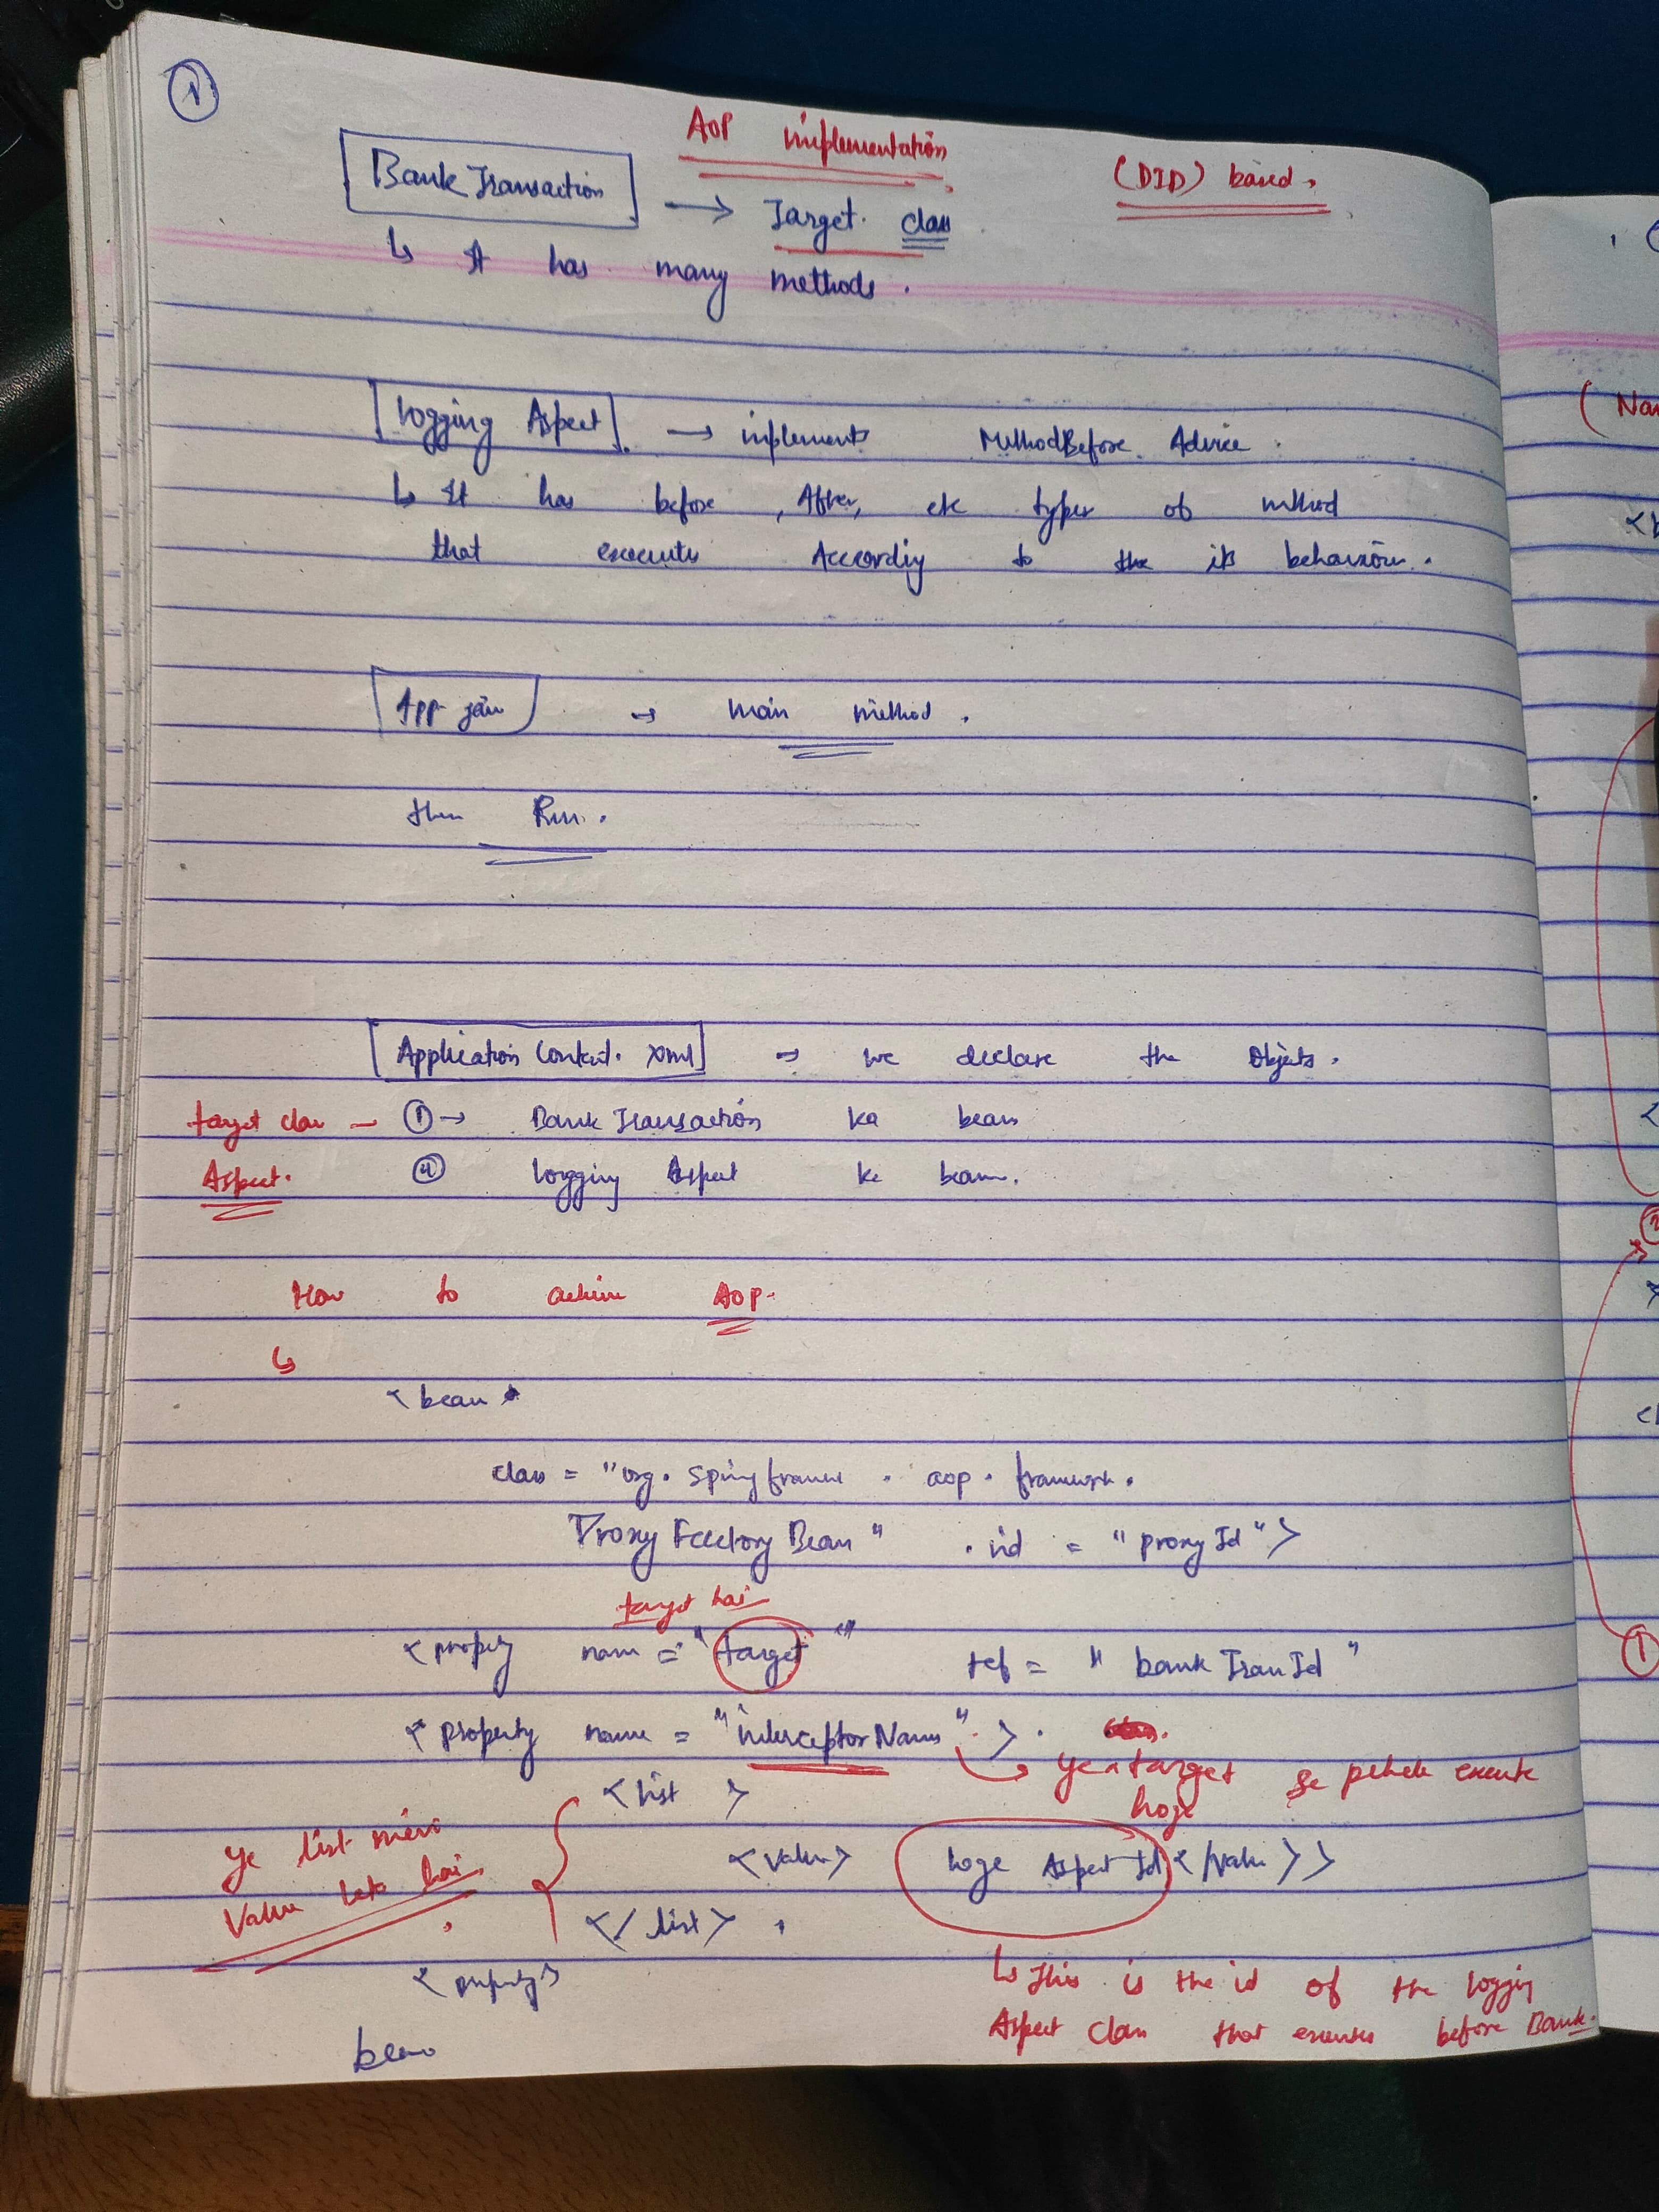 1
AOP implementation
(DTD) based.
Bank Transaction → Target class
↳ It has many methods.
Logging Aspect → implements MethodBefore Advice.
↳ It has before, After, etc types of method
that executes According to the its behaviour.
App java → main method.
then Run.
Application Context. xml → we declare the Objects.
target class — ① → Bank Transaction ka bean
Aspect. ② logging Aspect ke bean.
How to achieve AOP.
↳
<bean
class = "org. springframe . aop . framework.
Proxy Factory Bean" id = "proxyId" >
target hai
<property name = "target" ref = "bankTranId"
<property name = "interceptorNames" > .
→ ye target se pehele execute
hoge
<list >
ye list mein
value leta hai
<value> loge Aspect Id </value> >
</ list>
<property>
↳ This is the id of the logging
Aspect class that executes before Bank.
bean
(Nam